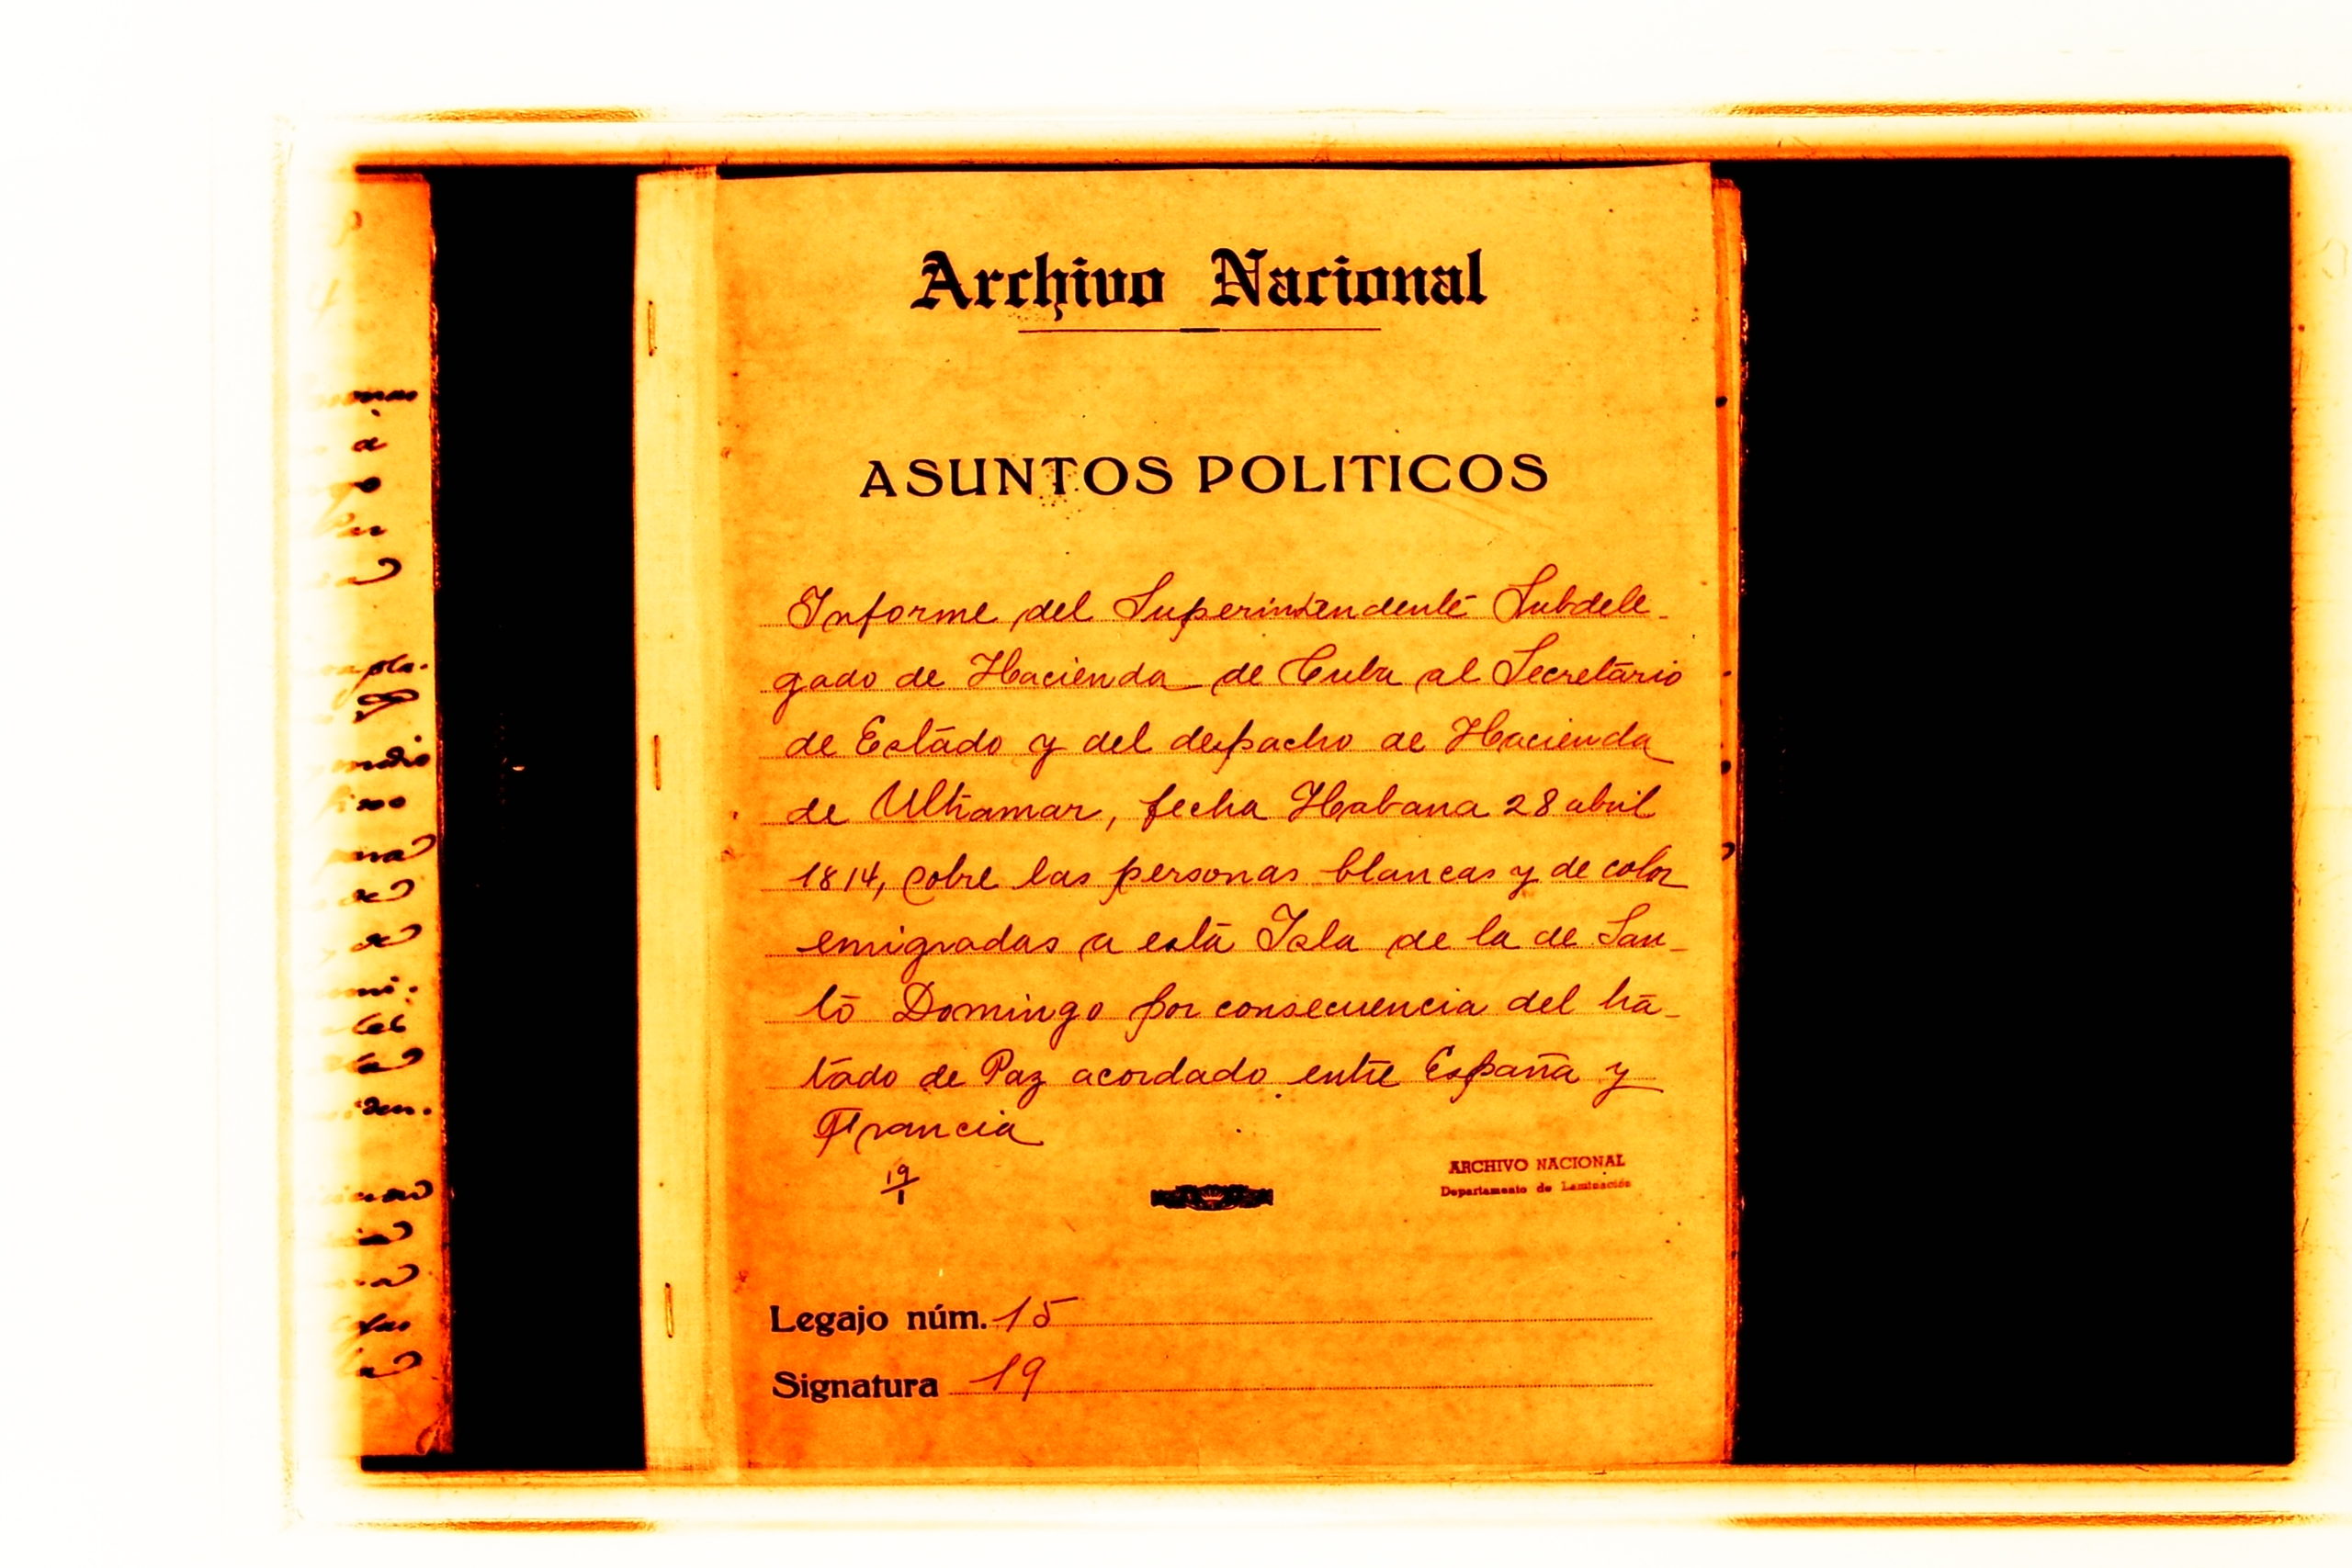 Archivo Nacional
ASUNTOS POLITICOS
Informe del Superintendente Subdele-
gado de Hacienda de Cuba al Secretario
de Estado y del despacho de Hacienda
de Ultramar, fecha Habana 28 abril
1814, sobre las personas blancas y de color
emigradas a esta Isla de la de San-
to Domingo por consecuencia del tra-
tado de Paz acordado entre España y
Francia
19
1
ARCHIVO NACIONAL
Departamento de Laminación
Legajo núm. 15
Signatura 19